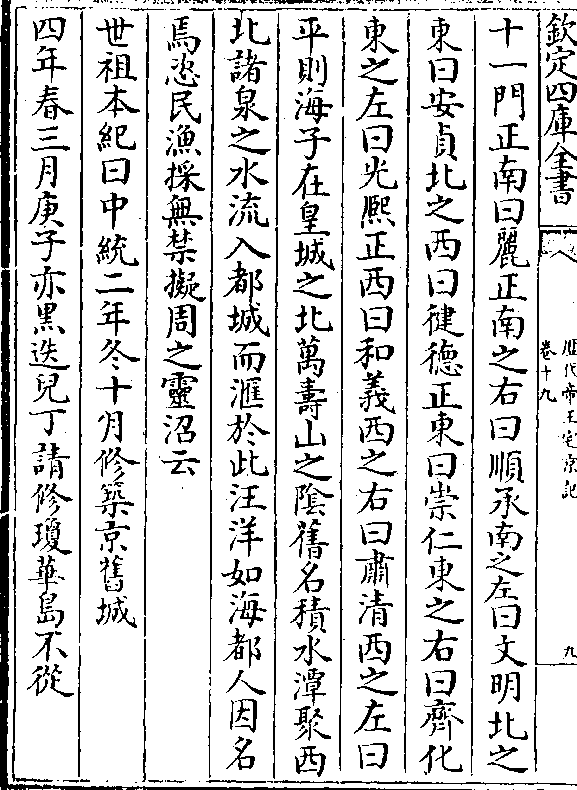 欽定四庫全書
歴代帝王宅京記
卷十九
九
十一門正南曰麗正南之右曰順承南之左曰文明北之
東曰安貞北之西曰健德正東曰崇仁東之右曰齊化
東之左曰光熈正西曰和義西之右曰肅清西之左曰
平則海子在皇城之北萬壽山之陰舊名積水潭聚西
北諸泉之水流入都城而滙於此汪洋如海都人因名
焉恣民漁採無禁擬周之靈沼云
世祖本紀曰中統二年冬十月修築京舊城
四年春三月庚子亦黒迭兒丁請修瓊華島不從